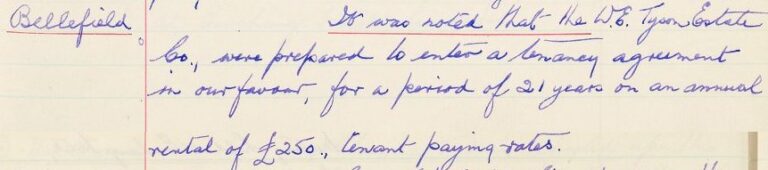 Bellefield It was noted that the W.E. Tyson Estate
Co., were prepared to enter a tenancy agreement
in our favour, for a period of 21 years on an annual
rental of £250., tenant paying rates.